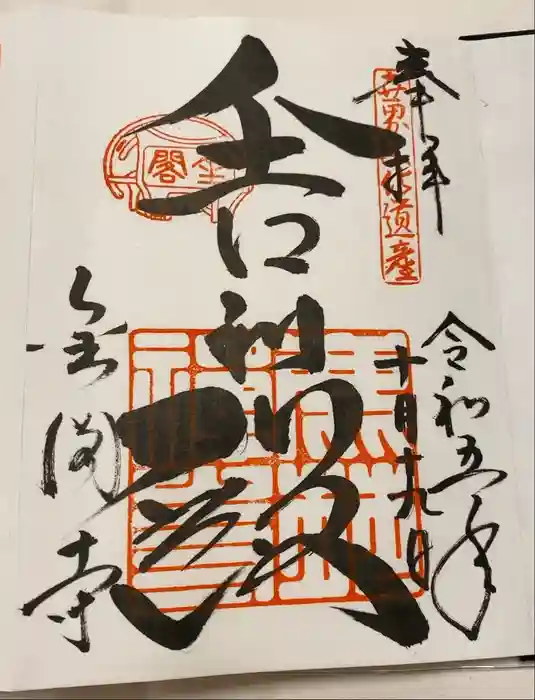 奉拝
世界文化遺産
令和五年
十月十九日
舎利殿
金閣
金閣寺